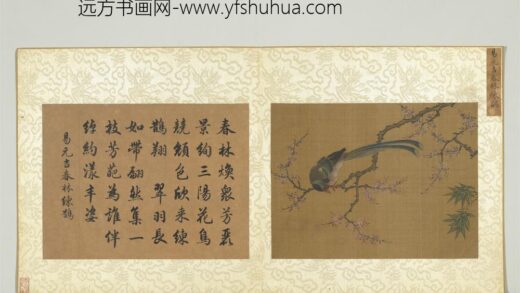 远方书画网-www.yfshuhua.com
春林煥眾芳麗
景絢三陽花鳥
競顏色欣来練
鵲翔 翠羽長
如帶翩然集一
枝芳葩為誰伴
綽約漾丰姿
易元吉春林練鵲